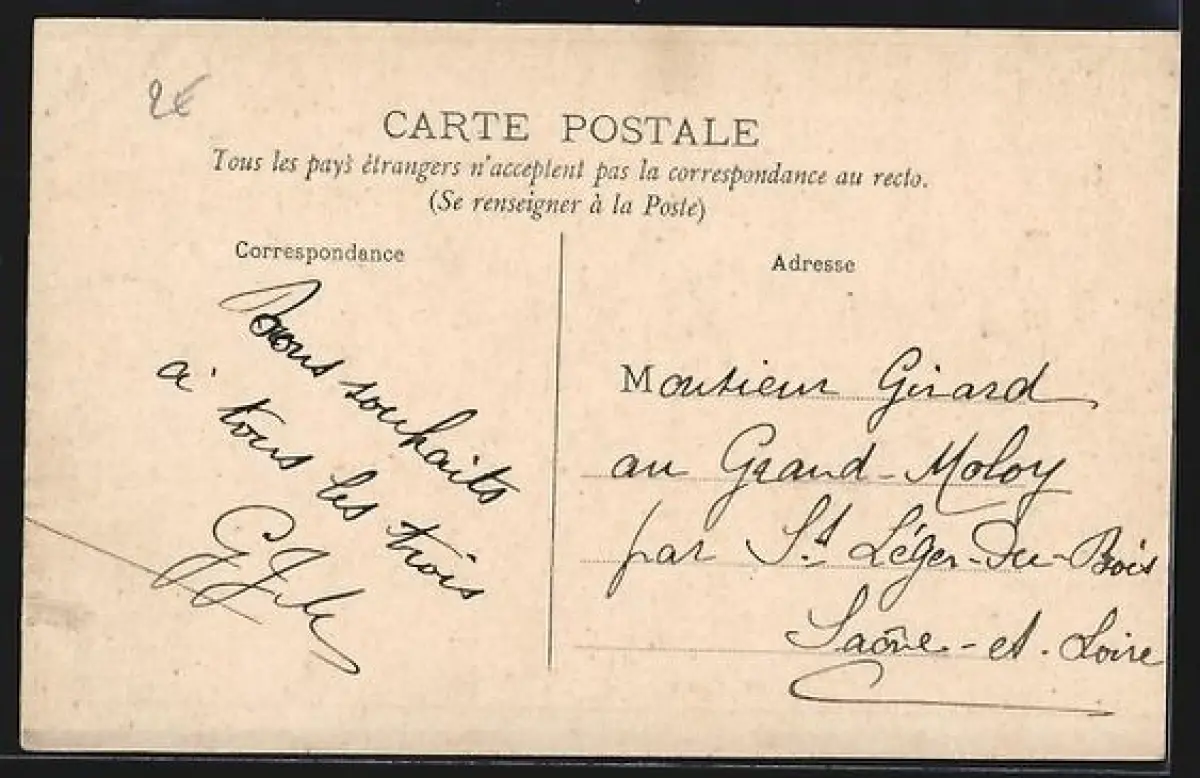 2€
CARTE POSTALE
Tous les pays étrangers n'acceptent pas la correspondance au recto.
(Se renseigner à la Poste)
Correspondance
Bons souhaits
à tous les trois
Adresse
Monsieur Girard
au Grand-Moloy
par St. Léger-du-Bois
Saône-et-Loire